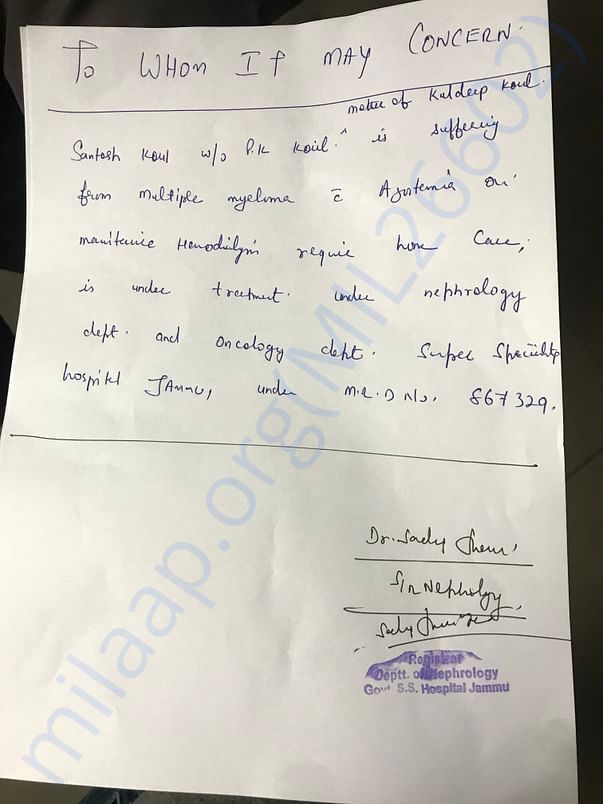 To WHOM IT MAY CONCERN.
mother of Kuldeep Koul.
Santosh Koul w/o P.K Koul. ^ is suffering
from multiple myeloma c̄ Azotemia on
require home Care,
is under treatment. under nephrology
dept. and oncology dept. Super Speciality
hospital JAMMU, under M.R.D No. 867329.
Dr.
S/R Nephrology
Registrar
Deptt. of Nephrology
Govt S.S. Hospital Jammu
milaap.org(MIL26602)